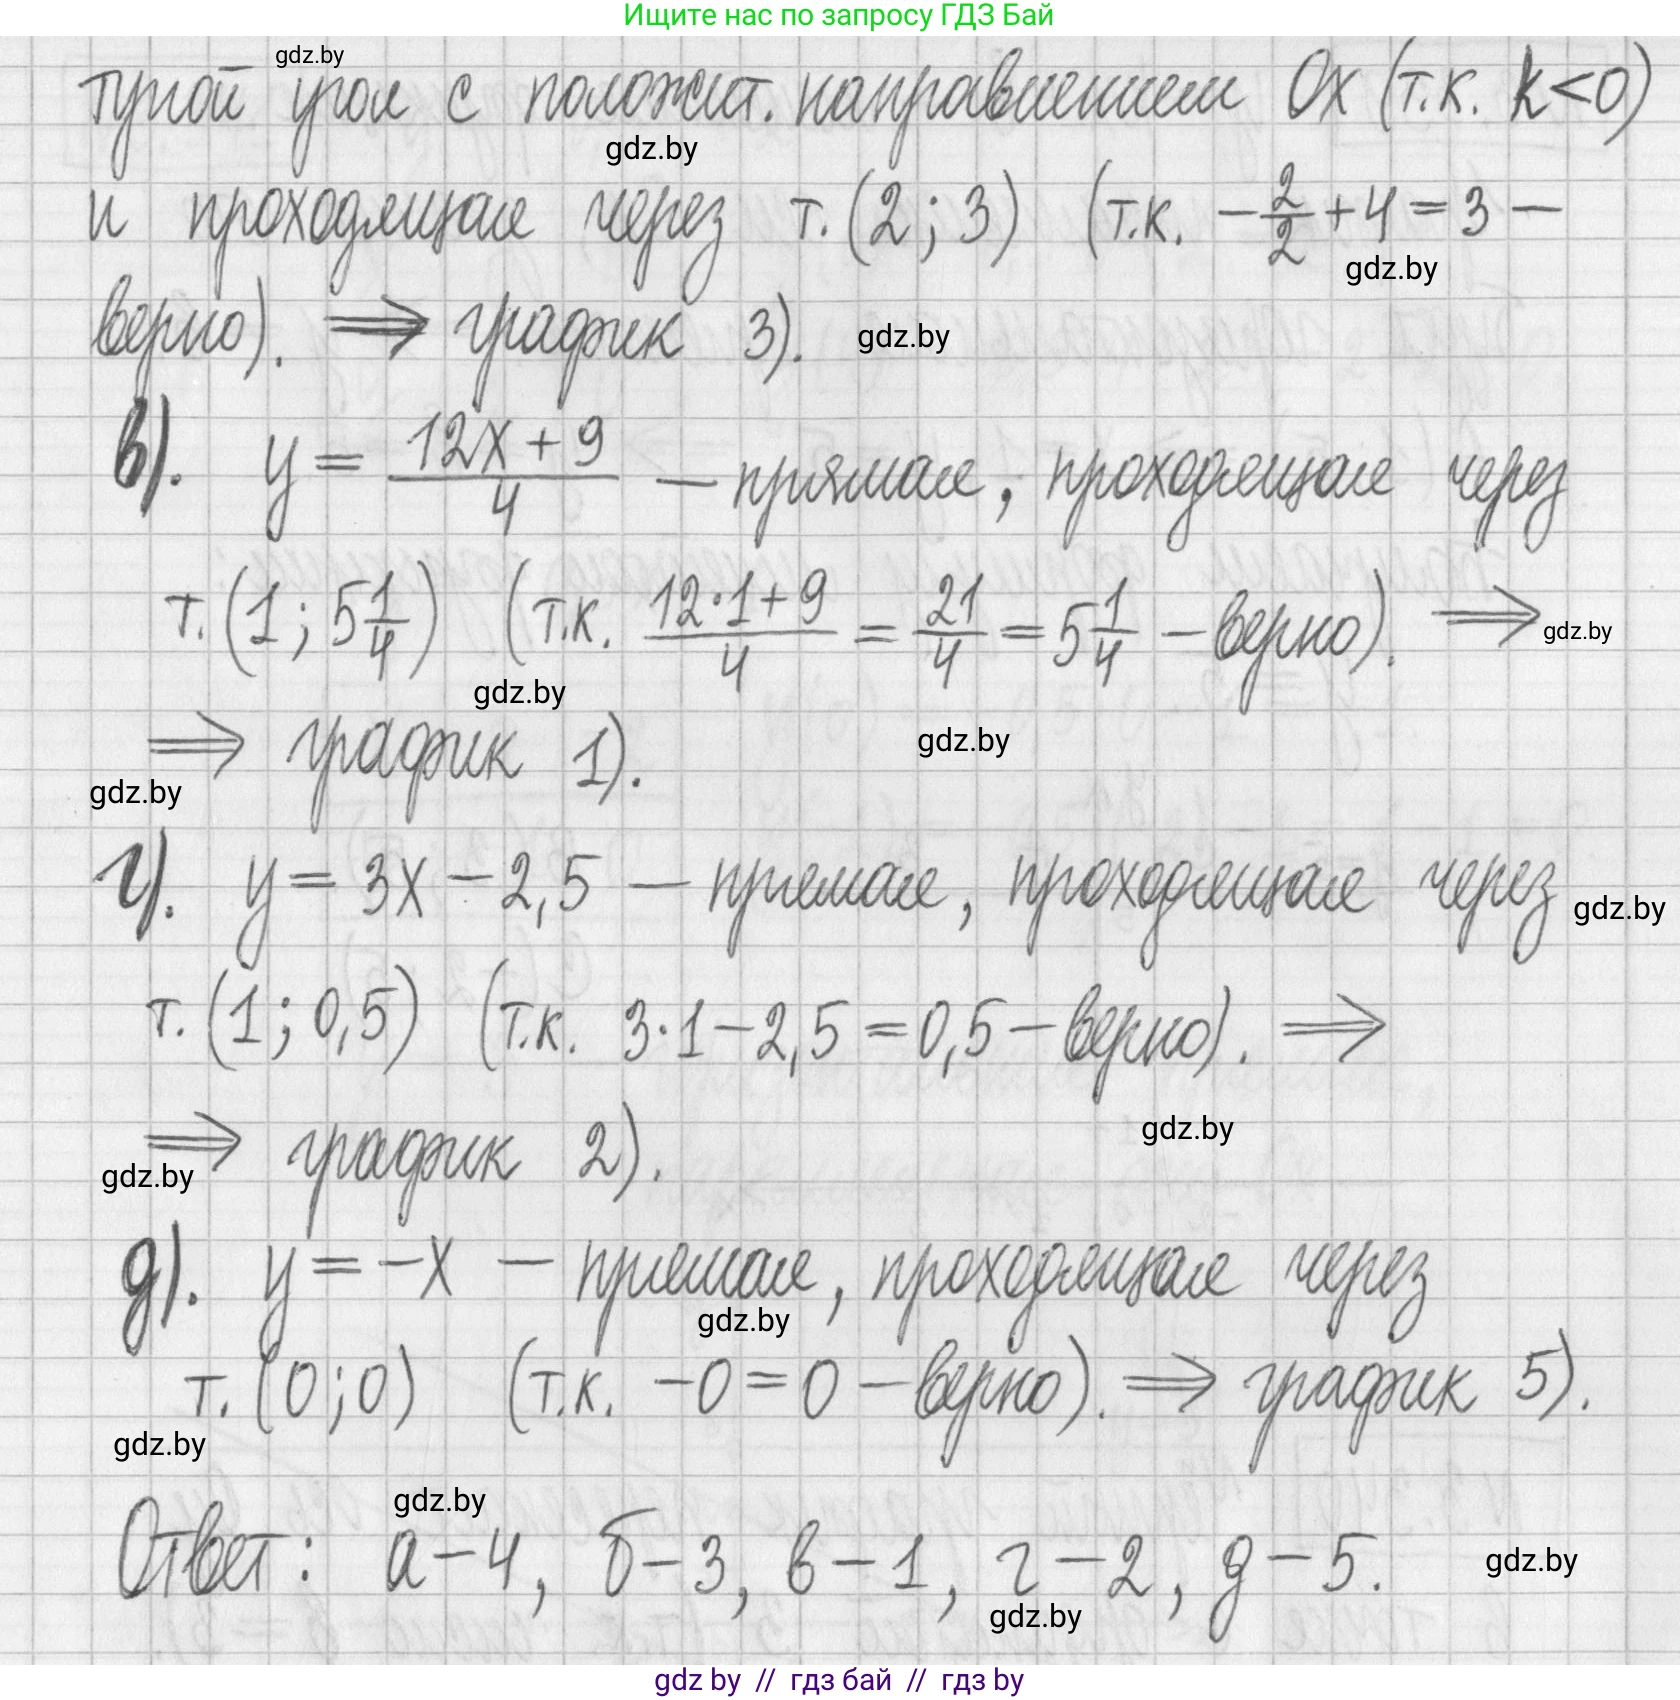 Ищите нас по запросу ГДЗ Бай
gdz.by
тупой угол с положит. направлением Ox (т.к. k<0)
gdz.by
и проходящая через т. (2; 3) (т.к. -2/2+4=3 -
gdz.by
верно). ⟹ график 3).
gdz.by
в). y = (12x+9)/4 — прямая, проходящая через
т. (1; 5 1/4) (т.к. (12·1+9)/4 = 21/4 = 5 1/4 - верно). ⟹
gdz.by
gdz.by
⟹ график 1).
gdz.by
gdz.by
г). y = 3x - 2,5 — прямая, проходящая через
gdz.by
т. (1; 0,5) (т.к. 3·1-2,5=0,5 - верно). ⟹
gdz.by
⟹ график 2).
gdz.by
д). y = -x — прямая, проходящая через
gdz.by
т. (0; 0) (т.к. -0=0 - верно). ⟹ график 5).
gdz.by
gdz.by
Ответ: а-4, б-3, в-1, г-2, д-5.
gdz.by
gdz.by
gdz by // гдз бай // гдз by